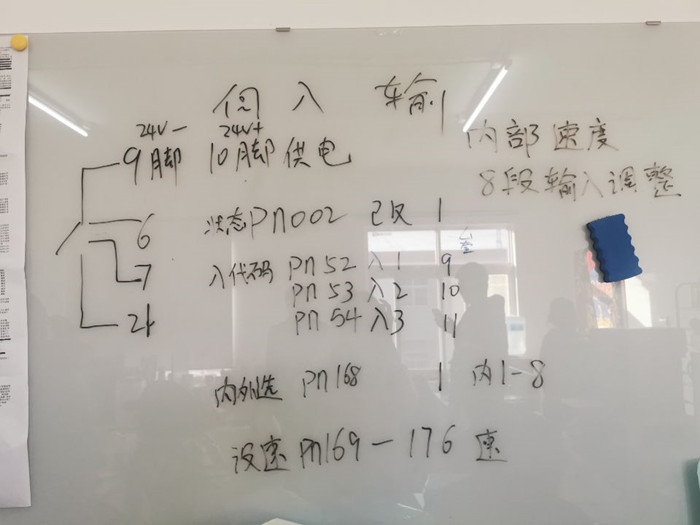 伺 入 输
24V- 24V+
9脚 10脚 供电
内部速度
8段输入调整
6 状态 Pn002 已改 1
7 入代码 Pn 52 入1 9
Pn 53 入2 10
21 Pn 54 入3 11
内外选 Pn168 1 内1-8
设速 Pn169 - 176 速